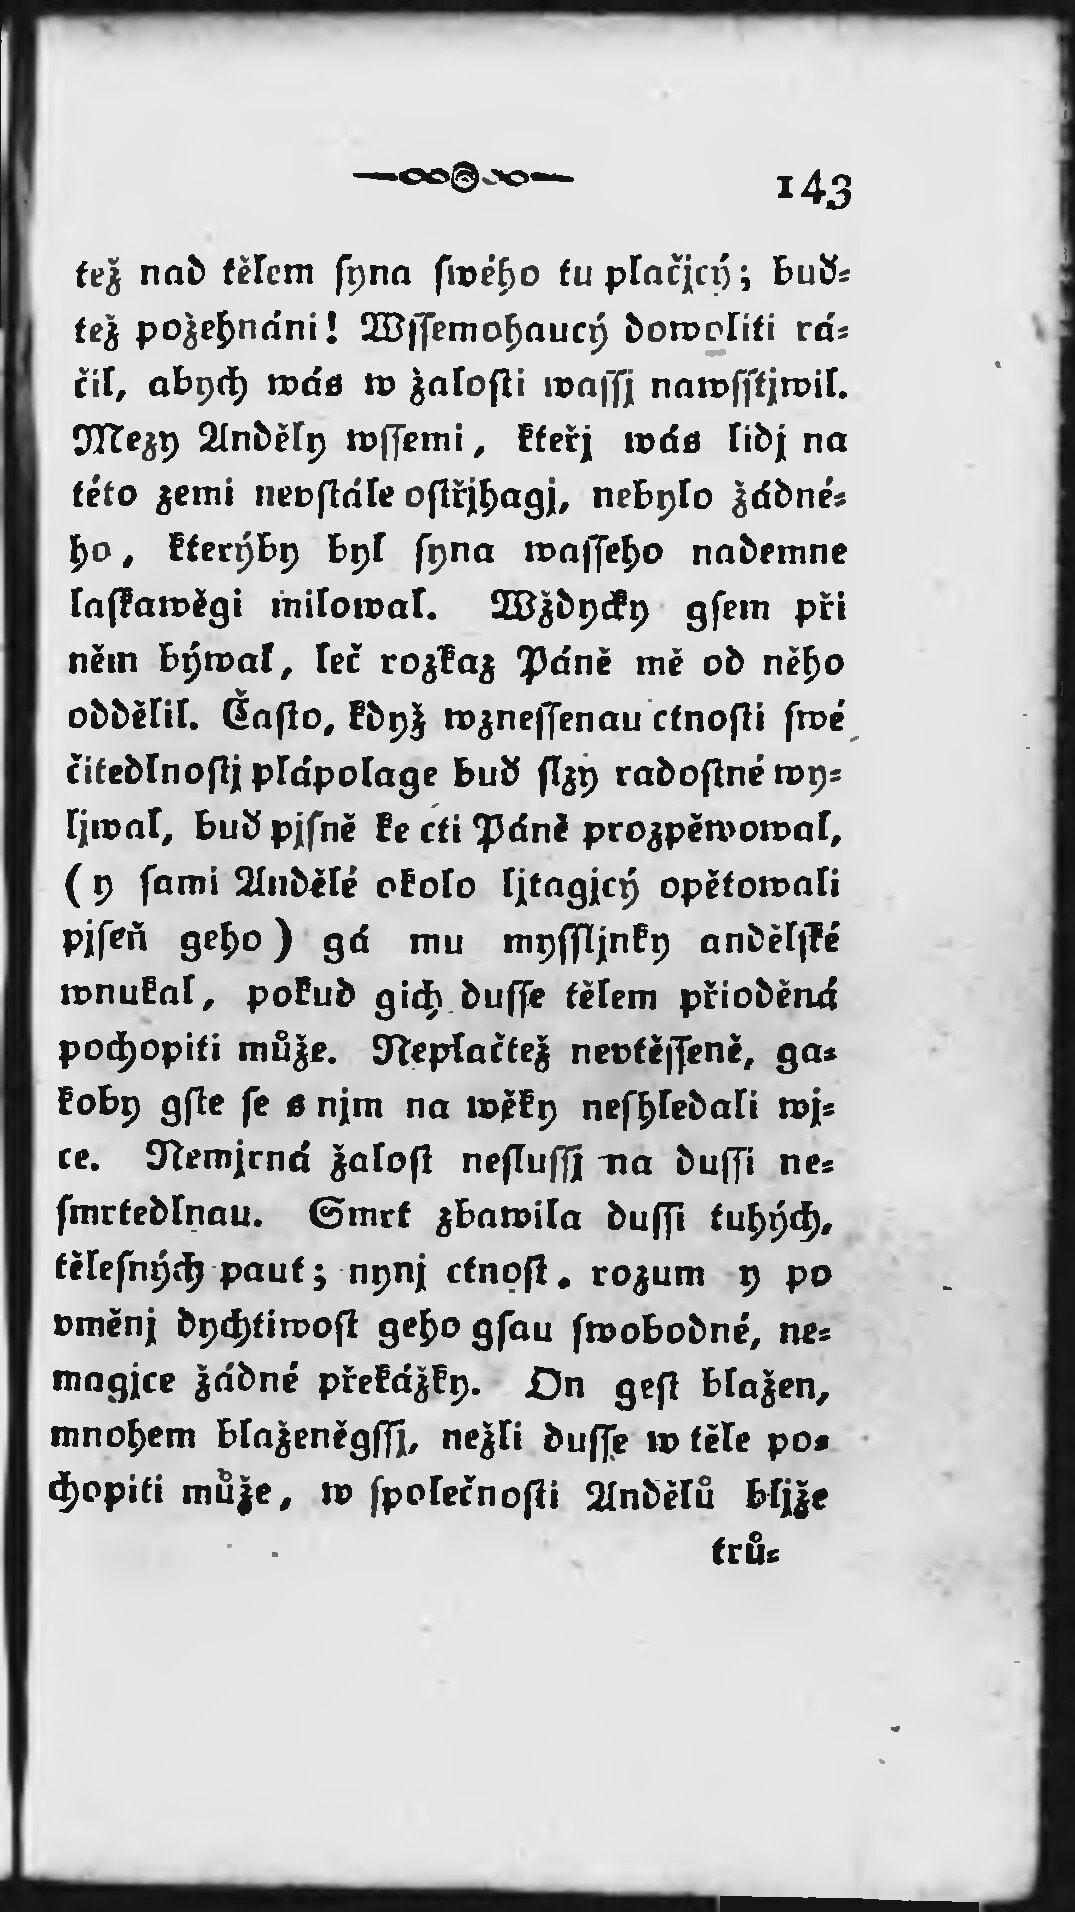 143
tež nad tělem ſyna ſwého tu plačjcý; buď⸗
tež požehnáni! Wſſemohaucý dowoliti rá⸗
čil, abych wás w žaloſti waſſj nawſſtjwil.
Mezy Anděly wſſemi, kteřj wás lidj na
této zemi nevſtále oſtřjhagj, nebylo žádné⸗
ho, kterýby byl ſyna waſſeho nademne
laſkawěgi milowal. Wždycky gſem při
něm býwal, leč rozkaz Páně mě od něho
oddělil. Čaſto, když wzneſſenau ctnoſti ſwé
čitedlnoſtj plápolage buď ſlzy radoſtné wy⸗
ljwal, buď pjſně ke cti Páně prozpěwowal,
(y ſami Andělé okolo ljtagjcý opětowali
pjſeň geho) gá mu myſſljnky andělſké
wnukal, pokud gich duſſe tělem přioděná
pochopiti může. Neplačtež nevtěſſeně, ga⸗
koby gſte ſe s njm na wěky neſhledali wj⸗
ce. Nemjrná žaloſt neſluſſj na duſſi ne⸗
ſmrtedlnau. Smrt zbawila duſſi tuhých,
těleſných paut; nynj ctnoſt. rozum y po
vměnj dychtiwoſt geho gſau ſwobodné, ne⸗
magjce žádné překážky. On geſt blažen,
mnohem blaženěgſſj, nežli duſſe w těle po⸗
chopiti může, w ſpolečnoſti Andělů bljže
trů⸗